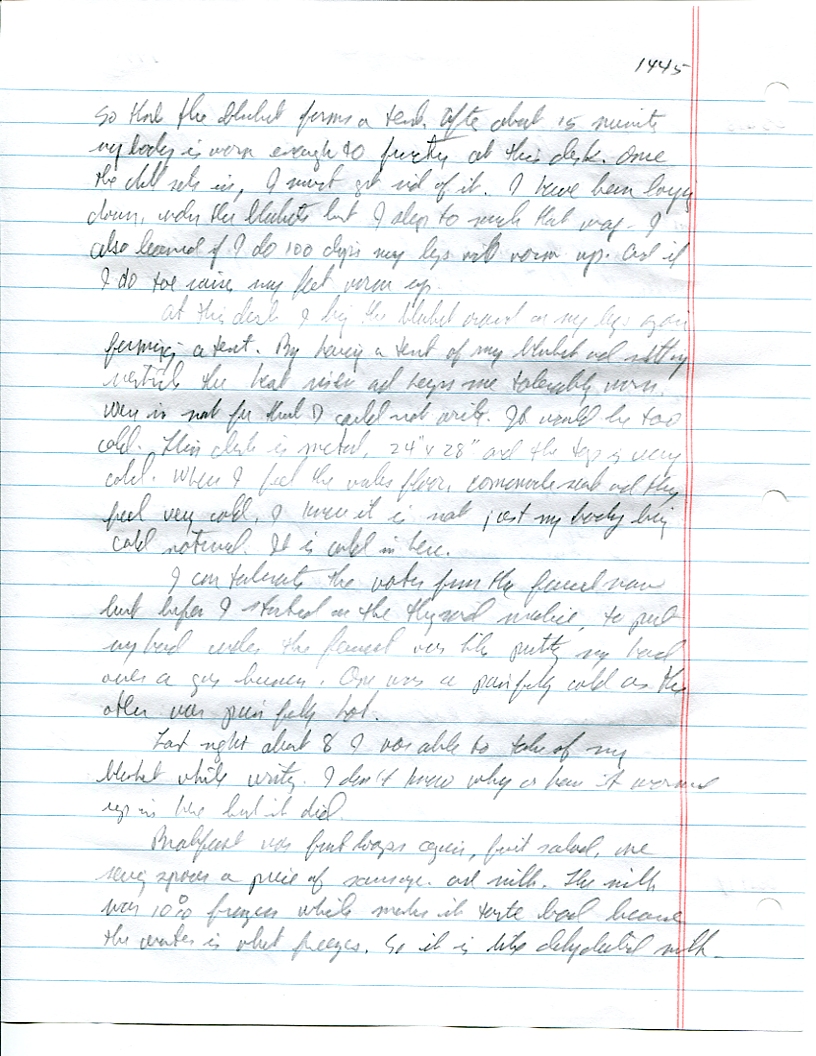 1445
so that the blanket forms a tent. After about 15 minutes
my body is warm enough to function at this desk. Once
the chill sets in, I must get rid of it. I have been laying
down, under the blankets but I sleep to much that way. I
also learned if I do 100 dips my legs will warm up. And if
I do toe raise my feet warm up.
At this desk I the blanket around on my legs again
forming a tent. By having a tent of my blanket and sitting
vertical the heat rises and keeps me tolerably warm.
Were is not for that I could not write. It would be too
cold. This desk is metal, 24" x 28" and the top is very
cold. When I feel the walls floor, commode seat and they
feel very cold, I know it is not just my body being
cold natured. It is cold in here.
I can tolerate the water from the faucet now
but before I started on the thyroid medicine, to put
my hand under the faucet was like putting my hand
over a gas burner. One was a painfully cold as the
other was painfully hot.
Last night about 8 I was able to take of my
blanket while writing. I don't know why or how it warmed
up in here but it did.
Breakfast was fruit loops again, fruit salad, one
serving spoon a piece of sausage. and milk. The milk
was 10% frozen while makes it taste bad because
the water is what freezes. So it is like dehydrated milk